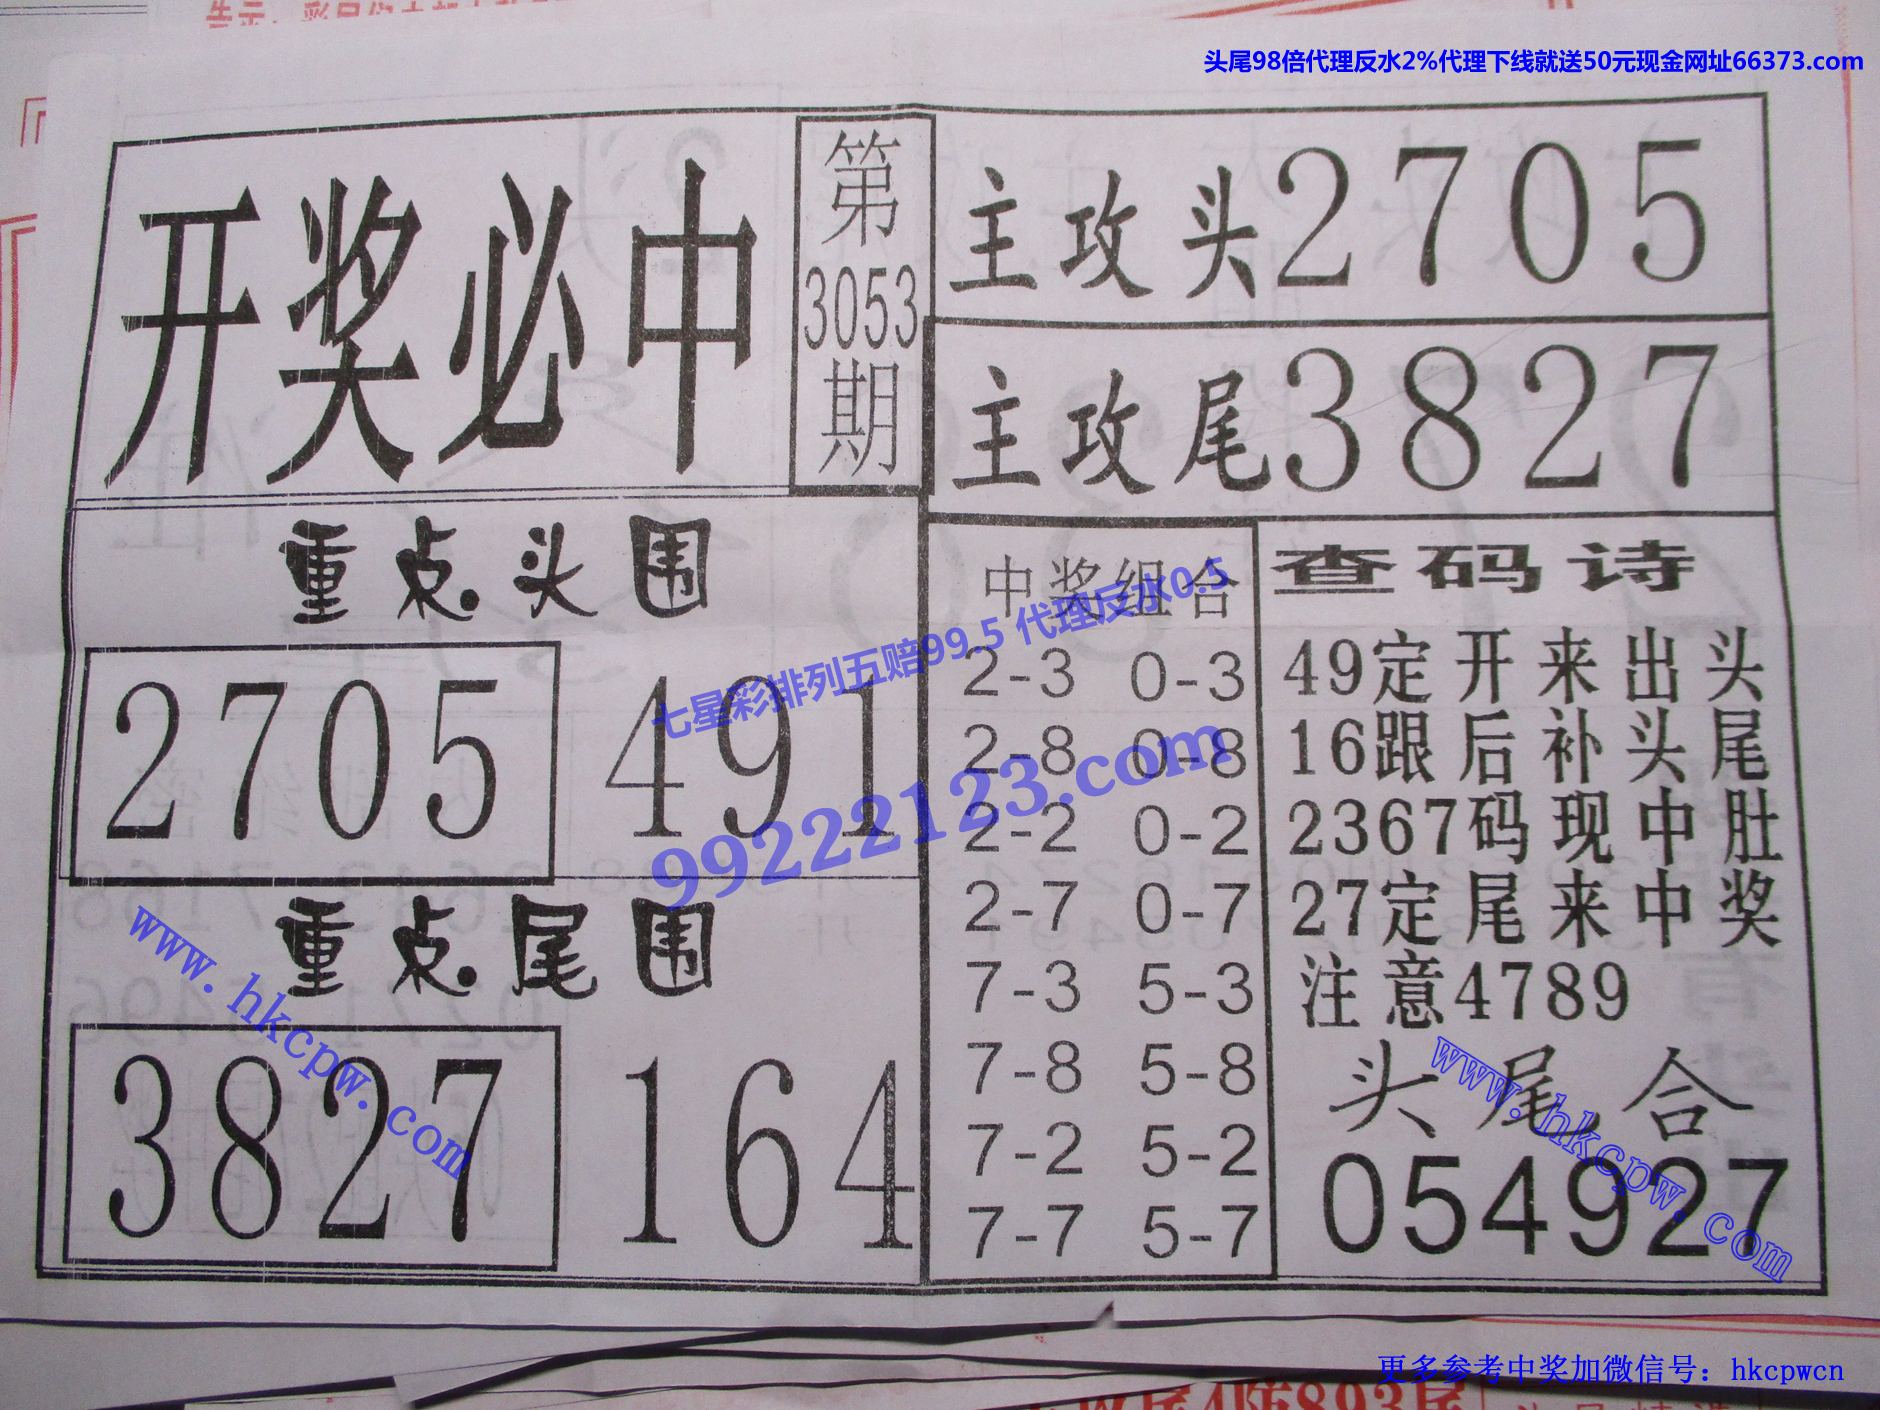 头尾98倍代理反水2%代理下线就送50元现金网址66373.com
开奖必中
第
3053
期
主攻头2705
主攻尾3827
重点头围
2705 491
重点尾围
3827 164
中奖组合
2-3 0-3
2-8 0-8
2-2 0-2
2-7 0-7
7-3 5-3
7-8 5-8
7-2 5-2
7-7 5-7
查码诗
49定开来出头
16跟后补头尾
2367码现中肚
27定尾来中奖
注意4789
头尾合
054927
七星彩排列五赔99.5 代理反水0.5
99222123.com
www.hkcpw.com
www.hkcpw.com
更多参考中奖加微信号：hkcpwcn